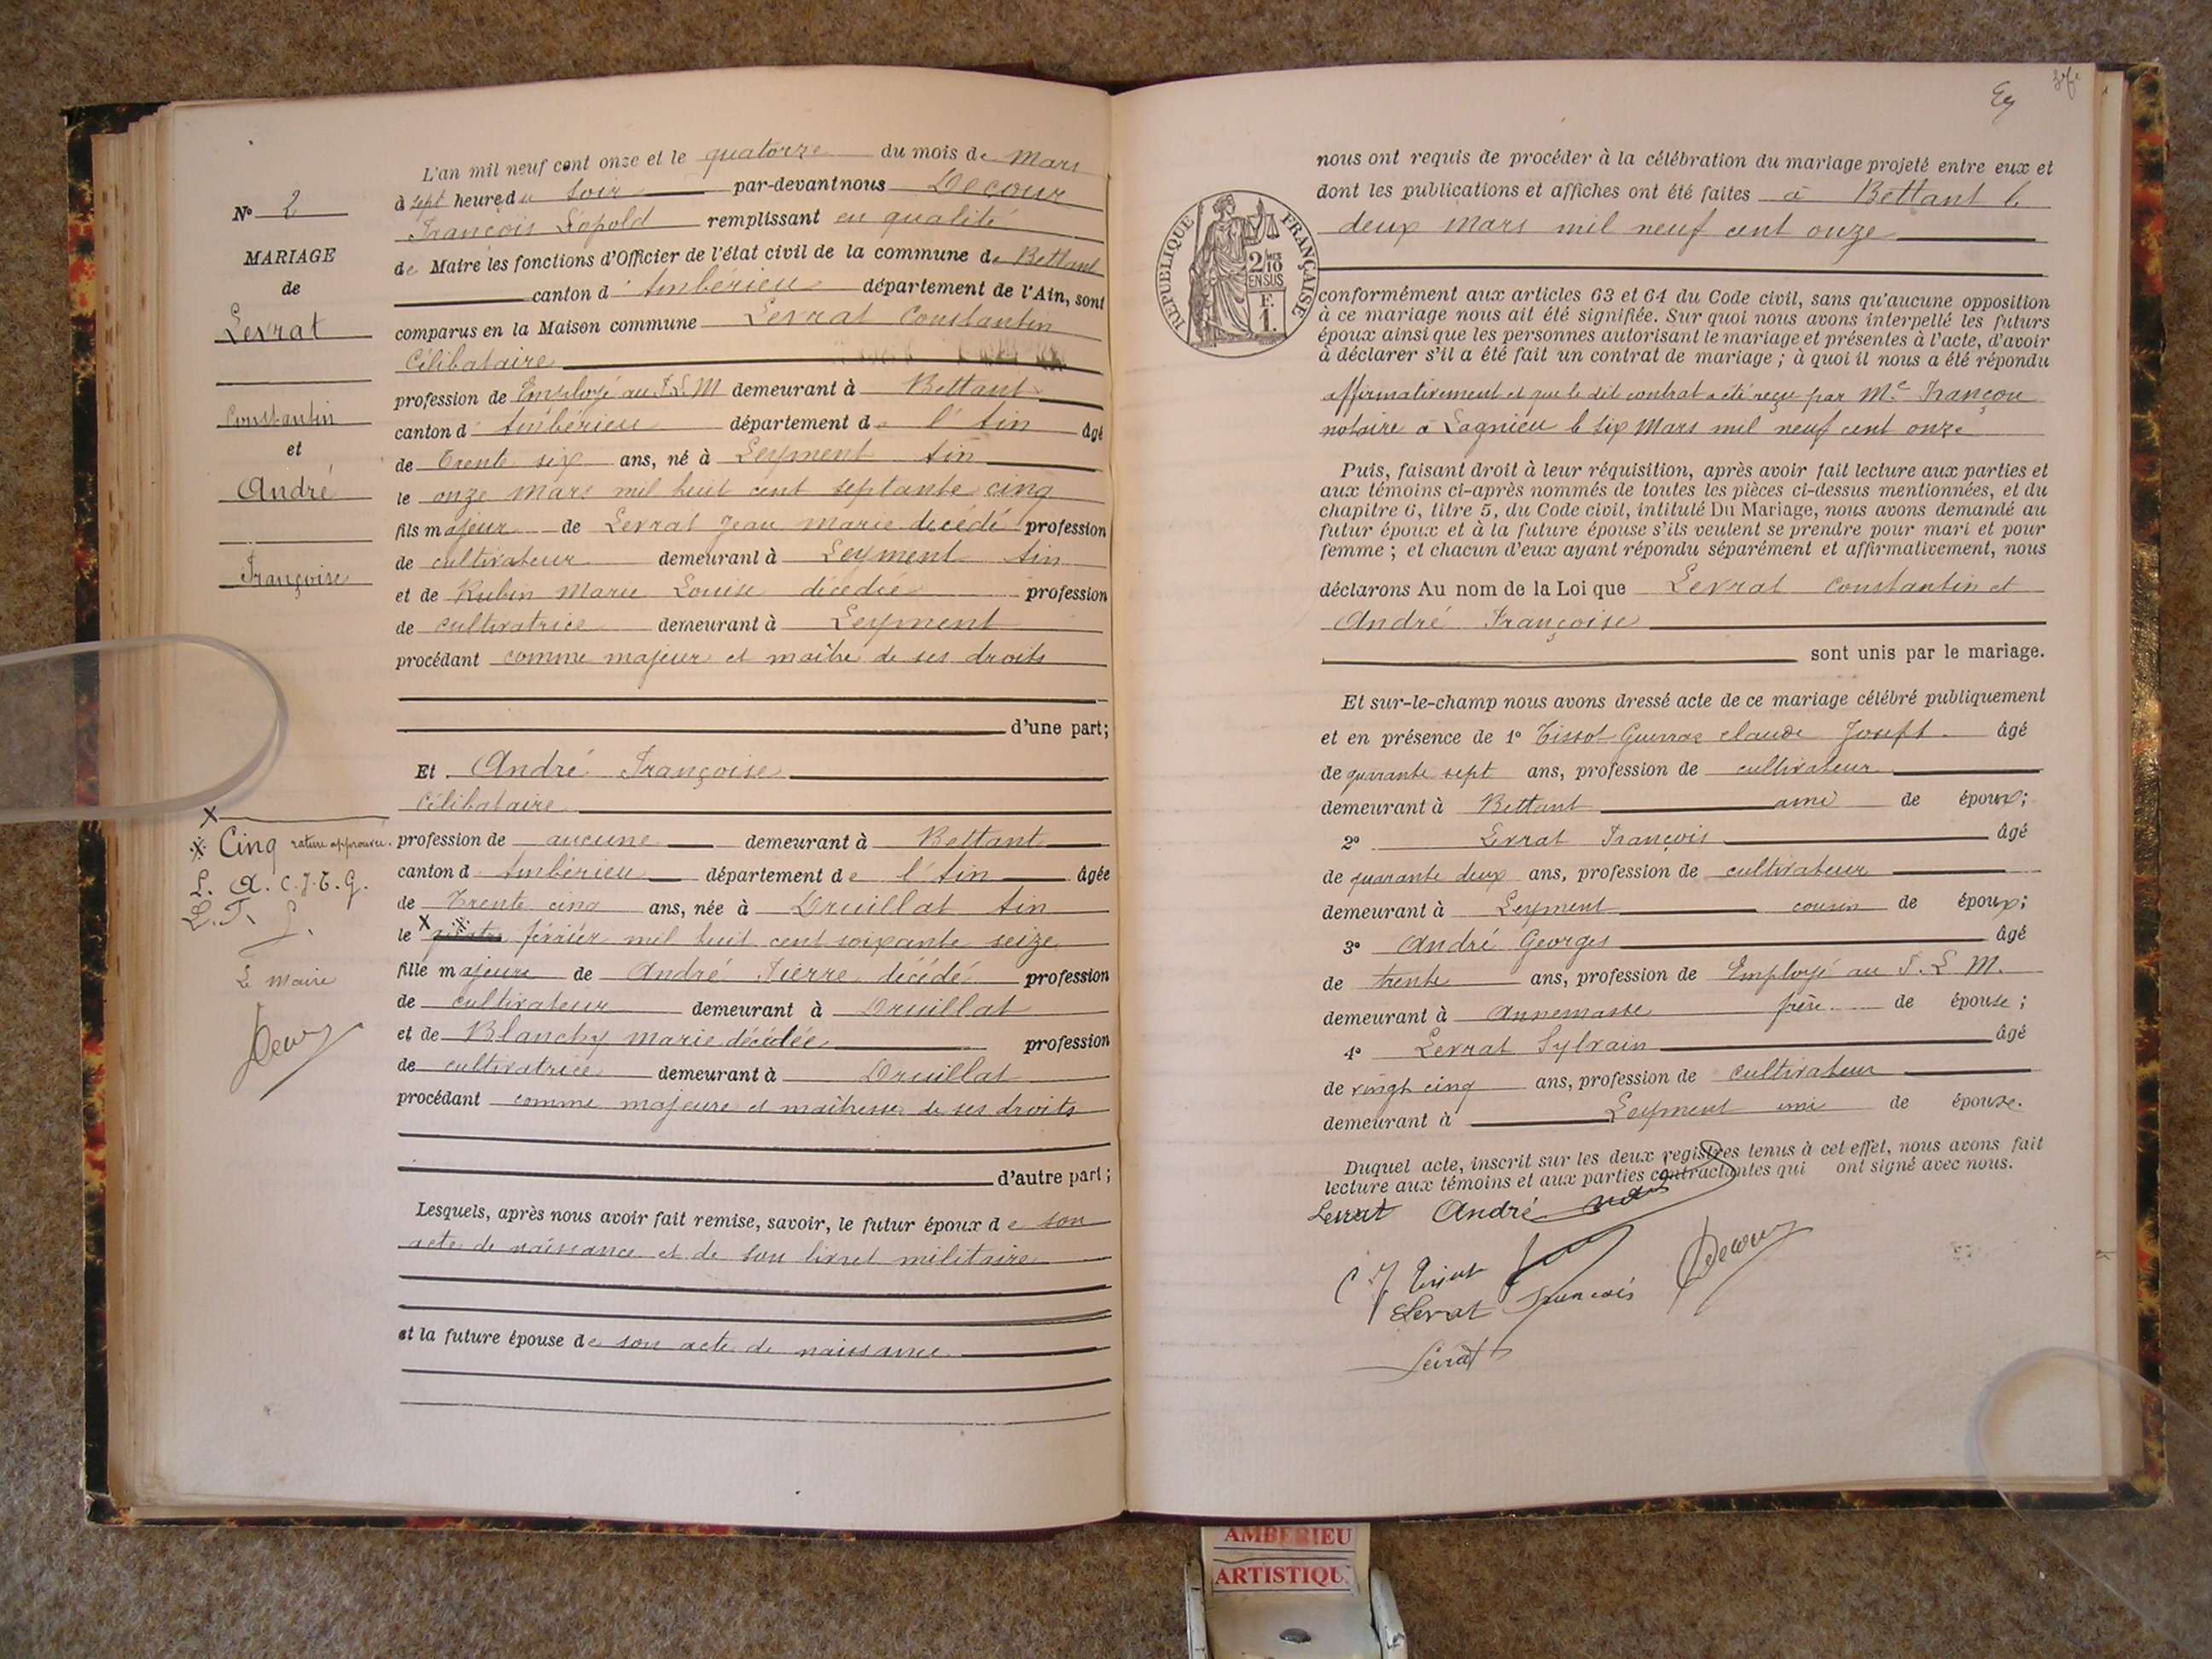 N° 2
MARIAGE
de
Levrat
Constantin
et
André
Françoise
L'an mil neuf cent onze et le quatorze du mois de Mars
à sept heure du Soir par-devant nous Decour
François Léopold remplissant en qualité
de Maire les fonctions d'Officier de l'état civil de la commune de Bettant
canton d' Ambérieu département de l'Ain, sont
comparus en la Maison commune Levrat Constantin
Célibataire
profession de Employé au P.L.M demeurant à Bettant
canton d' Ambérieu département de l'Ain âgé
de Trente six ans, né à Leyment Ain
le onze mars mil huit cent septante cinq
fils majeur de Levrat Jean Marie décédé profession
de cultivateur demeurant à Leyment Ain
et de Rubin Marie Louise décédée profession
de cultivatrice demeurant à Leyment
procédant comme majeur et maître de ses droits
d'une part;
Et André Françoise
Célibataire
profession de aucune demeurant à Bettant
canton d' Ambérieu département de l'Ain âgée
de Trente cinq ans, née à Druillat Ain
le février mil huit cent soixante seize
fille majeure de André Pierre décédé profession
de cultivateur demeurant à Druillat
et de Blanchy Marie décédée profession
de cultivatrice demeurant à Druillat
procédant comme majeure et maîtresse de ses droits
d'autre part;
Lesquels, après nous avoir fait remise, savoir, le futur époux de son
acte de naissance et de son livret militaire
et la future épouse de son acte de naissance
X
X Cinq rature approuvée.
L. A. C.J.T. G.
L.F. L.
Le Maire
Decour
nous ont requis de procéder à la célébration du mariage projeté entre eux et
dont les publications et affiches ont été faites à Bettant le
deux mars mil neuf cent onze
RÉPUBLIQUE FRANÇAISE
2/10 EN SUS
F. 1.
conformément aux articles 63 et 64 du Code civil, sans qu'aucune opposition
à ce mariage nous ait été signifiée. Sur quoi nous avons interpellé les futurs
époux ainsi que les personnes autorisant le mariage et présentes à l'acte, d'avoir
à déclarer s'il a été fait un contrat de mariage ; à quoi il nous a été répondu
affirmativement et que le dit contrat a été reçu par Me Françon
notaire à Lagnieu le six Mars mil neuf cent onze
Puis, faisant droit à leur réquisition, après avoir fait lecture aux parties et
aux témoins ci-après nommés de toutes les pièces ci-dessus mentionnées, et du
chapitre 6, titre 5, du Code civil, intitulé Du Mariage, nous avons demandé au
futur époux et à la future épouse s'ils veulent se prendre pour mari et pour
femme ; et chacun d'eux ayant répondu séparément et affirmativement, nous
déclarons Au nom de la Loi que Levrat Constantin et
André Françoise
sont unis par le mariage.
Et sur-le-champ nous avons dressé acte de ce mariage célébré publiquement
et en présence de 1° Tissot Guerraz Claude Joseph âgé
de quarante sept ans, profession de cultivateur
demeurant à Bettant ami de époux;
2° Levrat François âgé
de quarante deux ans, profession de cultivateur
demeurant à Leyment cousin de époux;
3° André Georges âgé
de trente ans, profession de Employé au P.L.M.
demeurant à Annemasse frère de épouse;
4° Levrat Sylvain âgé
de vingt cinq ans, profession de cultivateur
demeurant à Leyment ami de épouse.
Duquel acte, inscrit sur les deux registres tenus à cet effet, nous avons fait
lecture aux témoins et aux parties contractantes qui ont signé avec nous.
Levrat André
C J Tissot Decour
Levrat François
Levrat
AMBERIEU
ARTISTIQU